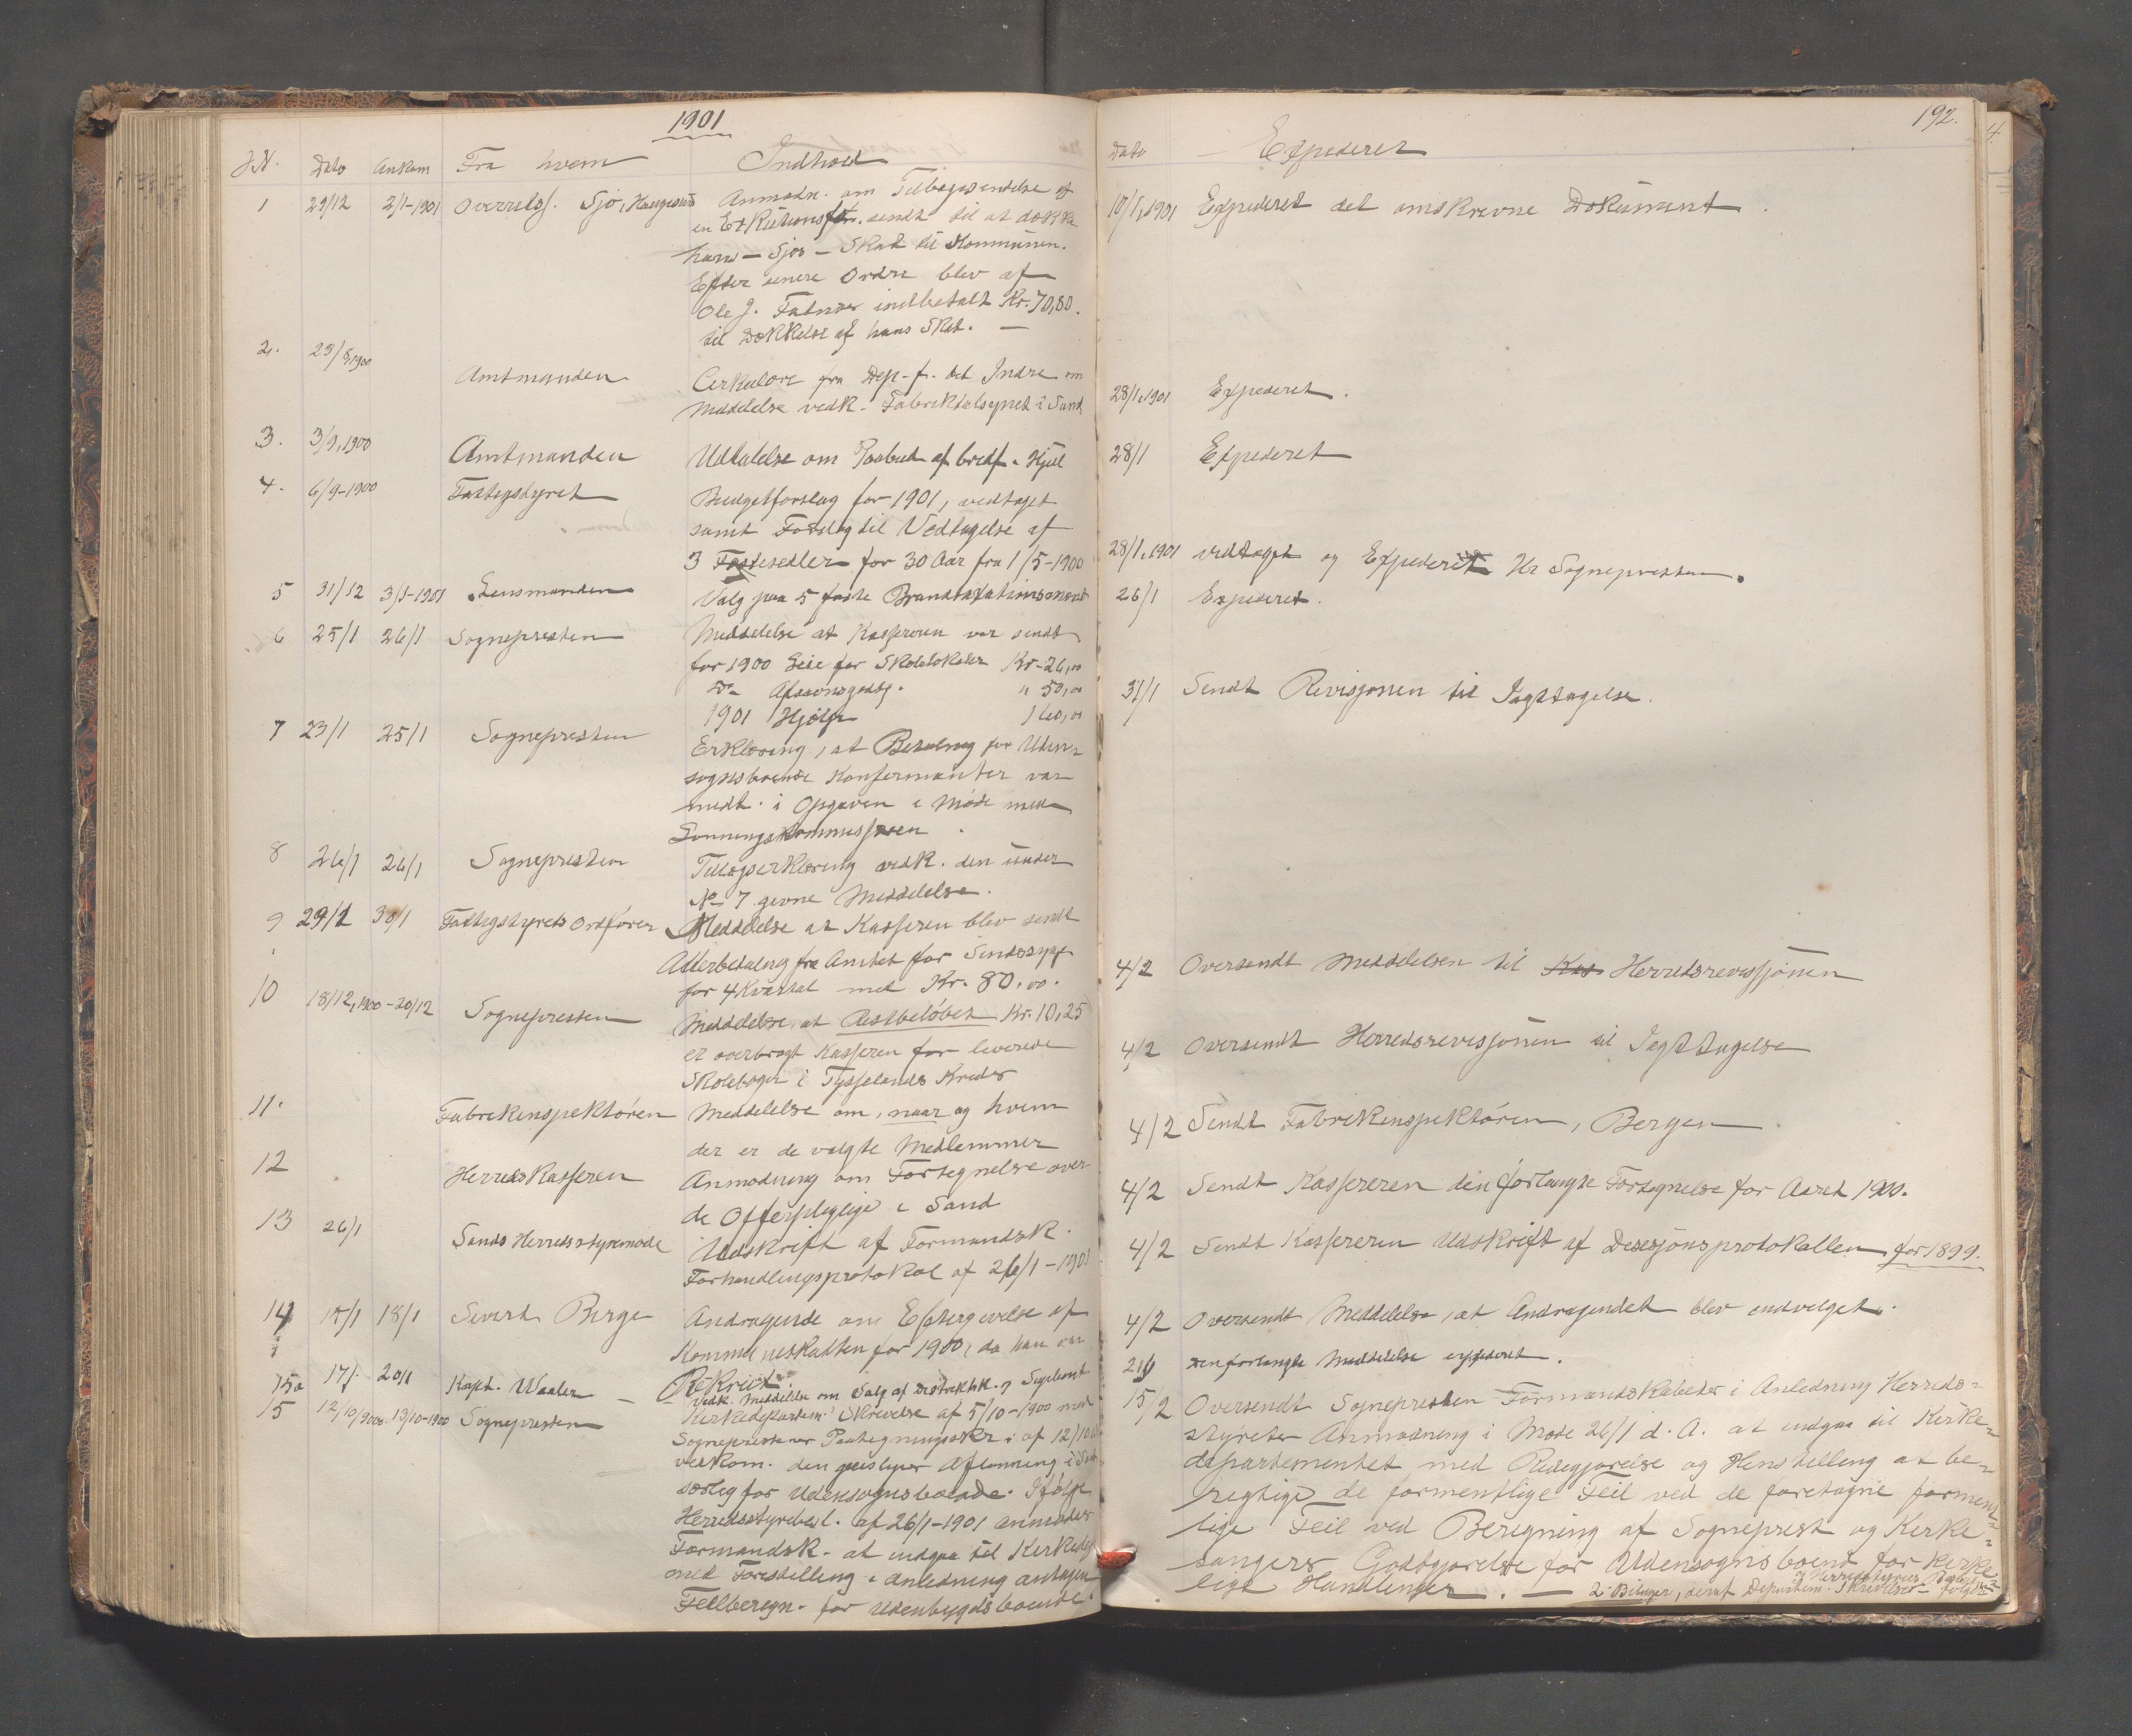 1901
J.N. Dato Ankom Fra hvem Indhold
1 29/12 2/1-1901 Overretss. Sjo, Haugesund Anmodn. om Tilbagesendelse af
en Exekutionsf. sendt til at dække
hans - Sjos - Skat til Kommunen.
Efter senere Ordre blev af
Ole J. indbetalt Kr. 70,80.
til Dækkelse af hans Skat. —
2. 23/8,1900
Amtmanden Cirkulære fra Dep. f. det Indre om
Meddelelse vedk. Fabriktilsynet i Sand
3. 3/9,1900 Amtmanden Udtalelse om Paabud af bredf. Hjul
4. 6/9-1900 Fattigstyret Budgetforslag for 1901, vedtaget
samt Forslag til Vedtagelse af
3 Festesedler for 30 Aar fra 1/5-1900
5 31/12 3/1-1901 Lensmanden Valg paa 5 faste Brandtaxationsmænd
6 25/1 26/1 Sognepresten Meddelelse at Kasseren var sendt
for 1900 Leie for Skolelokaler Kr. 26,00
Do Afsavnsgodtg. " 50,00
1901 Hjælp 160,00
7 23/1 25/1 Sognepresten Erklæring, at Betaling for Uden-
sognsboende Konfirmanter var
medt. i Opgaven i Møde med
Lønningskommissjonen.
8 26/1 26/1 Sognepresten Tillægserklæring vedk. den under
No 7 givne Meddelelse.
9 29/1 30/1 Fattigstyrets Ordfører Meddelelse at Kasseren blev sendt
Atterbetaling fra Amtet for Sindssyge
for 4 Kvartal med Kr. 80,00.
10 18/12,1900-20/12 Sognepresten Meddelelse, at Restbeløbet Kr. 10,25
er overbragt Kasseren for leverede
Skolebøger i Tysselands Kreds
11. Fabrikinspektøren Meddelelse om, naar og hvem
der er de valgte Medlemmer
12 Herredskasseren Anmodning om Fortegnelse over
de Offerpligtige i Sand
13 26/1 Sands Herredsstyremøde Udskrift af Formandsk.
Forhandlingsprotokol af 26/1-1901
14 15/1 18/1 Sivert Berge Andragende om Eftergivelse af
Kommuneskatten for 1900, da han var
Rekrut.
15a 17/1 20/1 Kapt. Waaler — Vedk. Meddelelse om Valg af Distriktsk. og Suppleant
15 12/10,1900. 13/10-1900 Sognepresten Kirkedepartem. Skrivelse af 5/10-1900 med
Sogneprestens Paategningsskr. af 12/10
vedkom. den geistlige Aflønning i Sand
særlig for Udensognsboende. Ifølge
Herredsstyrebesl. af 26/1-1901 anmodes
Formandsk. at indgaa til Kirkedep
med Forestilling i Anledning antagen
Feilberegn. for Udenbygdsboende.
192.
4
Dato Expederet
10/1,1901 Expederet det omskrevne Dokument.
28/1,1901 Expederet.
28/1 Expederet
28/1,1901 vedtaget og Expederet Hr Sognepresten.
26/1 Expederet.
31/1 Sendt Revisjonen til Iagttagelse.
4/2 Oversendt Meddelelsen til Kas Herredsrevisjonen
4/2 Oversendt Herredsrevisjonen til Iagttagelse
4/2 Sendt Fabrikinspektøren, Bergen
4/2 Sendt Kassereren den forlangte Fortegnelse for Aaret 1900.
4/2 Sendt Kassereren Udskrift af Desisjonsprotokollen for 1899.
4/2 Oversendt Meddelelse, at Andragendet blev indvilget.
21/1 den forlangte Meddelelse expederet.
15/2 Oversendt Sognepresten Formandskabets i Anledning Herreds-
styrets Anmodning i Møde 26/1 d. A. at indgaa til Kirke-
departementet med Redegjørelse og Henstilling at be-
rigtige de formentlige Feil ved de foretagne forment-
lige Feil ved Beregning af Sogneprest og Kirke-
sangers Godtgjørelse for Udensognsboend for kirke-
lige Handlinger. — 2 Bilager, deraf Departem. Skrivelse
og Herredsstyrets